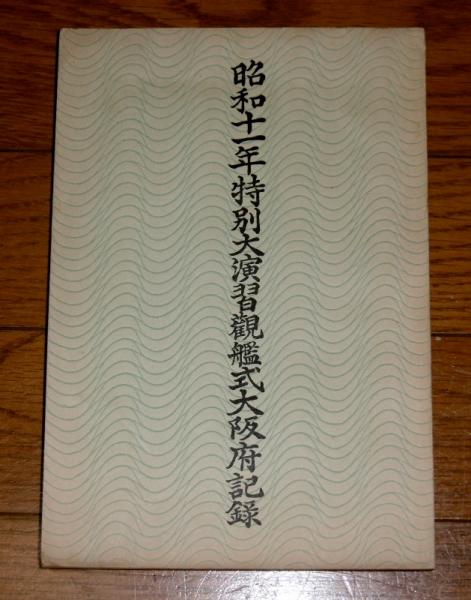 昭和十一年特別大演習觀艦式大阪府記録